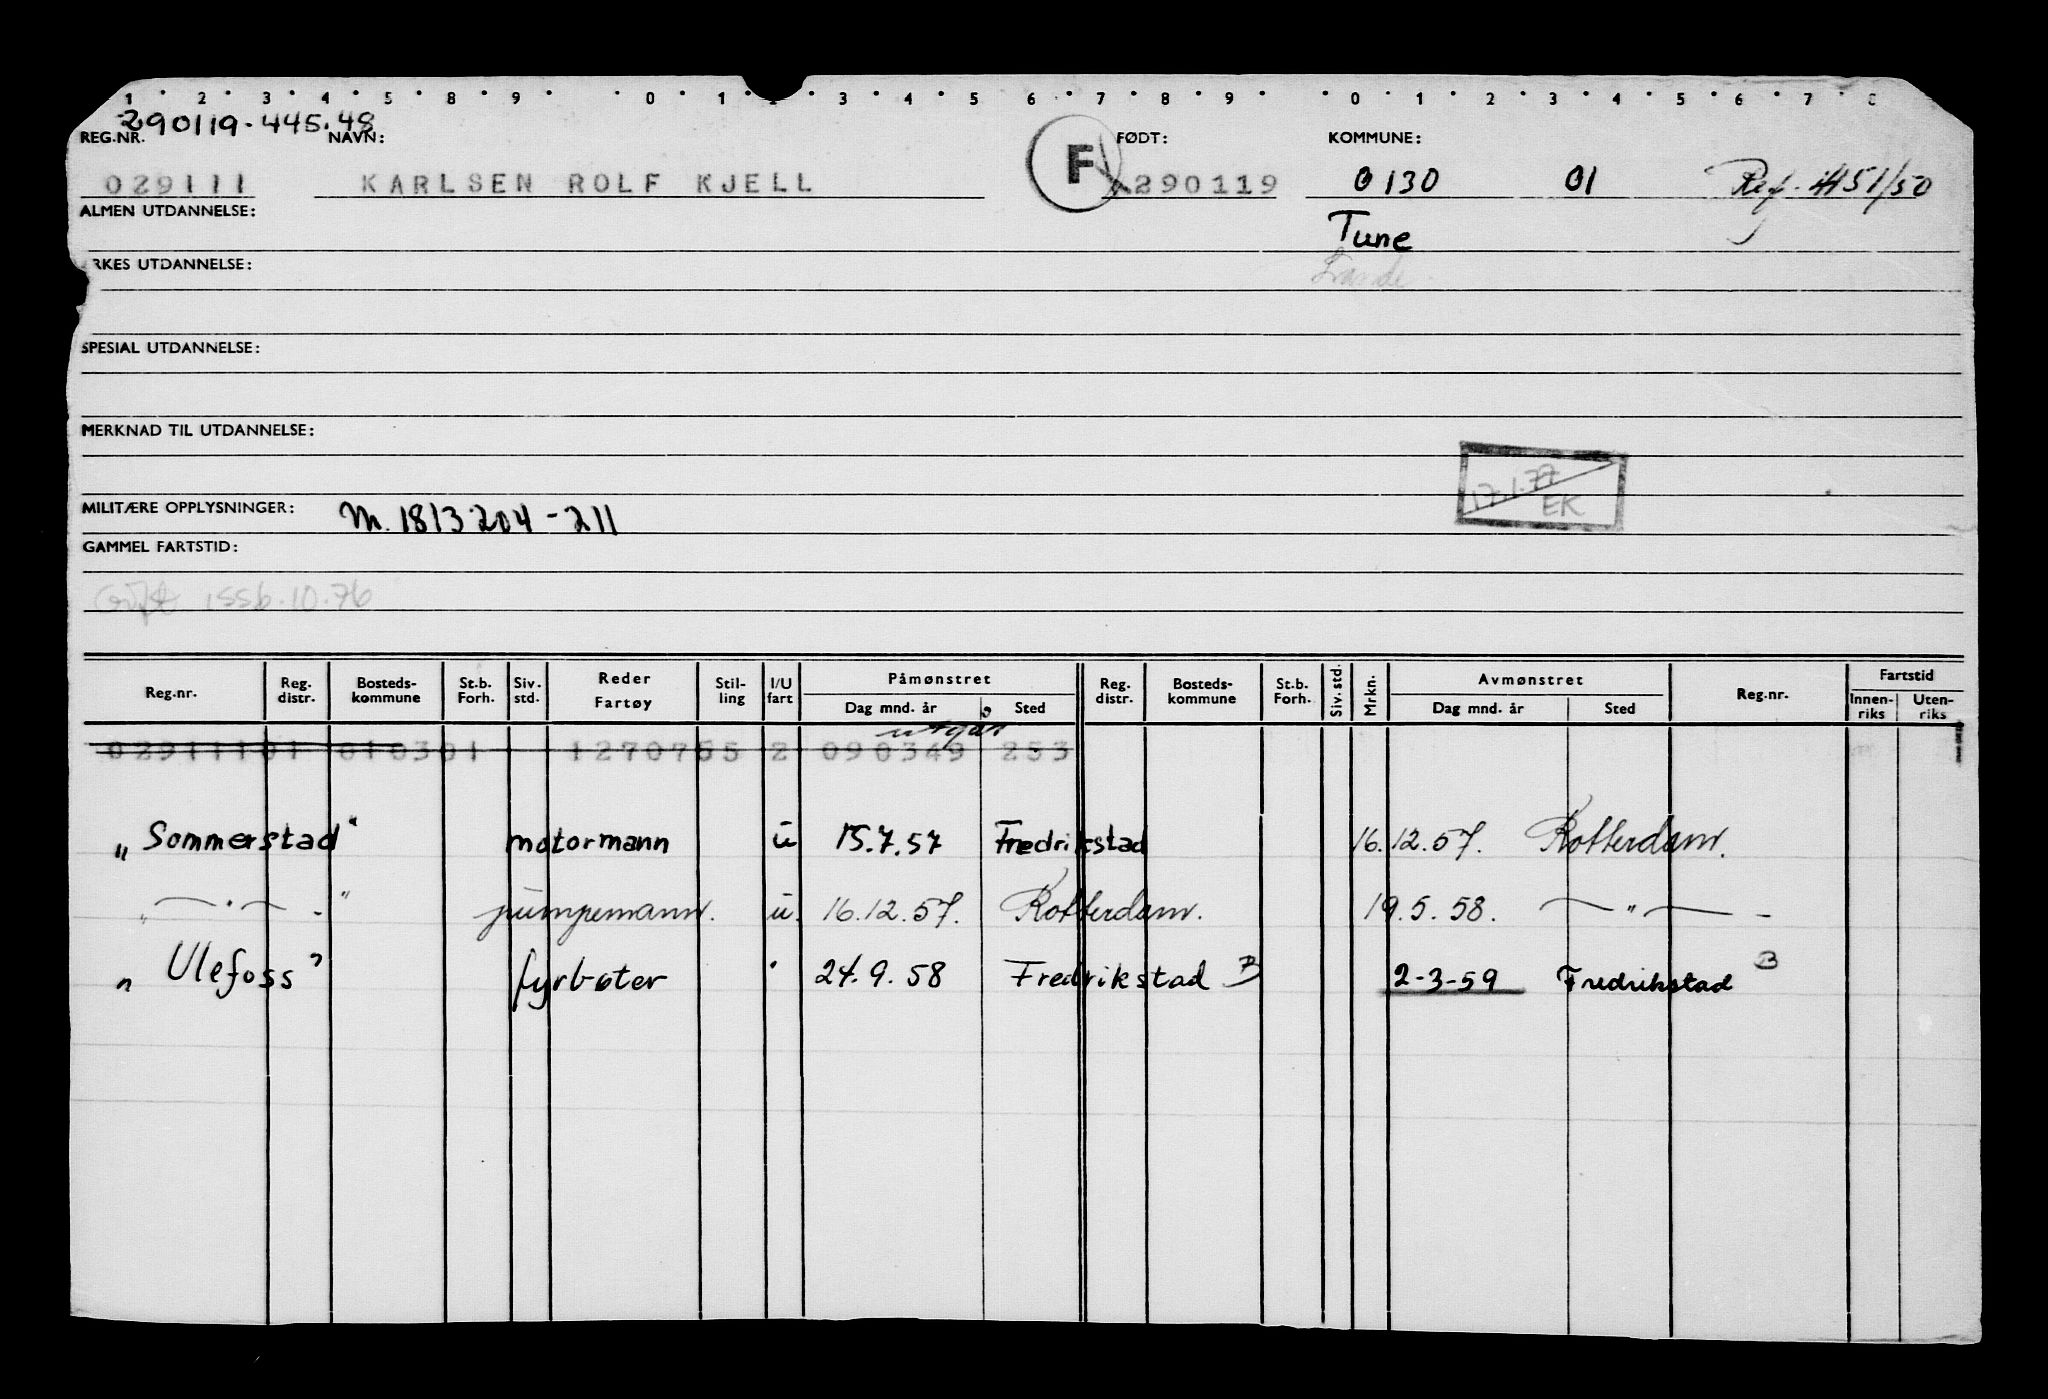 1 2 3 4 5 8 9 0 1 2 3 4 5 6 7 8 9 0 1 2 3 4 5 6 7
290119-445.48
REG.NR. NAVN: FØDT: KOMMUNE:
029111 KARLSEN ROLF KJELL F 290119 0130 01 Ref. 4451/50
ALMEN UTDANNELSE: Tune
RKES UTDANNELSE:
SPESIAL UTDANNELSE:
MERKNAD TIL UTDANNELSE:
17.1.77
EK
MILITÆRE OPPLYSNINGER: M. 1813204-211
GAMMEL FARTSTID:
1556.10.76
Reg.nr. Reg. distr. Bosteds-kommune St.b. Forh. Siv. std. Reder Fartøy Stil-ling I/U fart Påmønstret Dag mnd. år Sted Reg. distr. Bosteds-kommune St.b. Forh. Siv. std. Mrkn. Avmønstret Dag mnd. år Sted Reg.nr. Fartstid Innen-riks Uten-riks
utgår
02911101 010301 1270755 2 090349 253
„Sommerstad" motormann u 15.7.57 Fredrikstad 16.12.57. Rotterdam.
„ — " — " pumpemann. u. 16.12.57. Rotterdam. 19.5.58. — " —
„Ulefoss" fyrbøter " 24.9.58 Fredrikstad B 2-3-59 Fredrikstad B